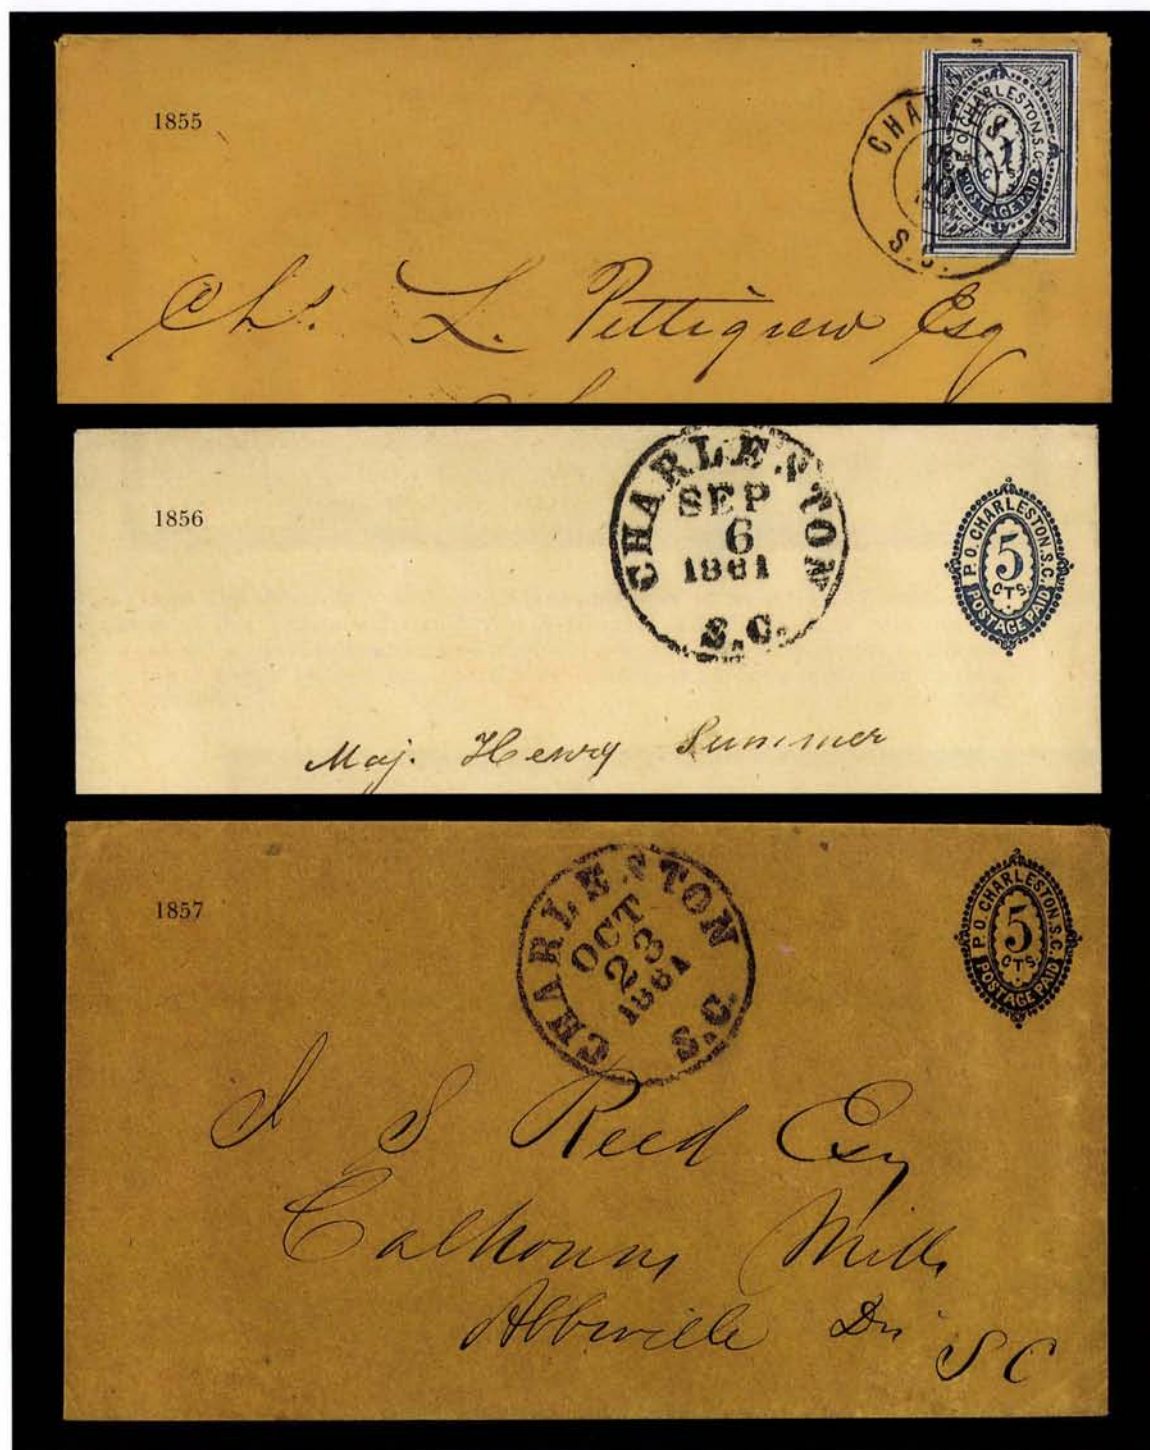 1855
5 5
CHARLESTON
P.O. CHARLESTON. S.C.
POSTAGE PAID
5 5
S.C.
Chs. L. Pettigrew Esq
1856
CHARLESTON
SEP
6
1861
S.C.
P.O. CHARLESTON. S.C.
5
CTS.
POSTAGE PAID
Maj. Henry Summer
1857
CHARLESTON
OCT
23
1861
S.C.
P.O. CHARLESTON. S.C.
5
CTS.
POSTAGE PAID
J S Reed Esq
Calhouns Mills
Abbeville Dis
S C